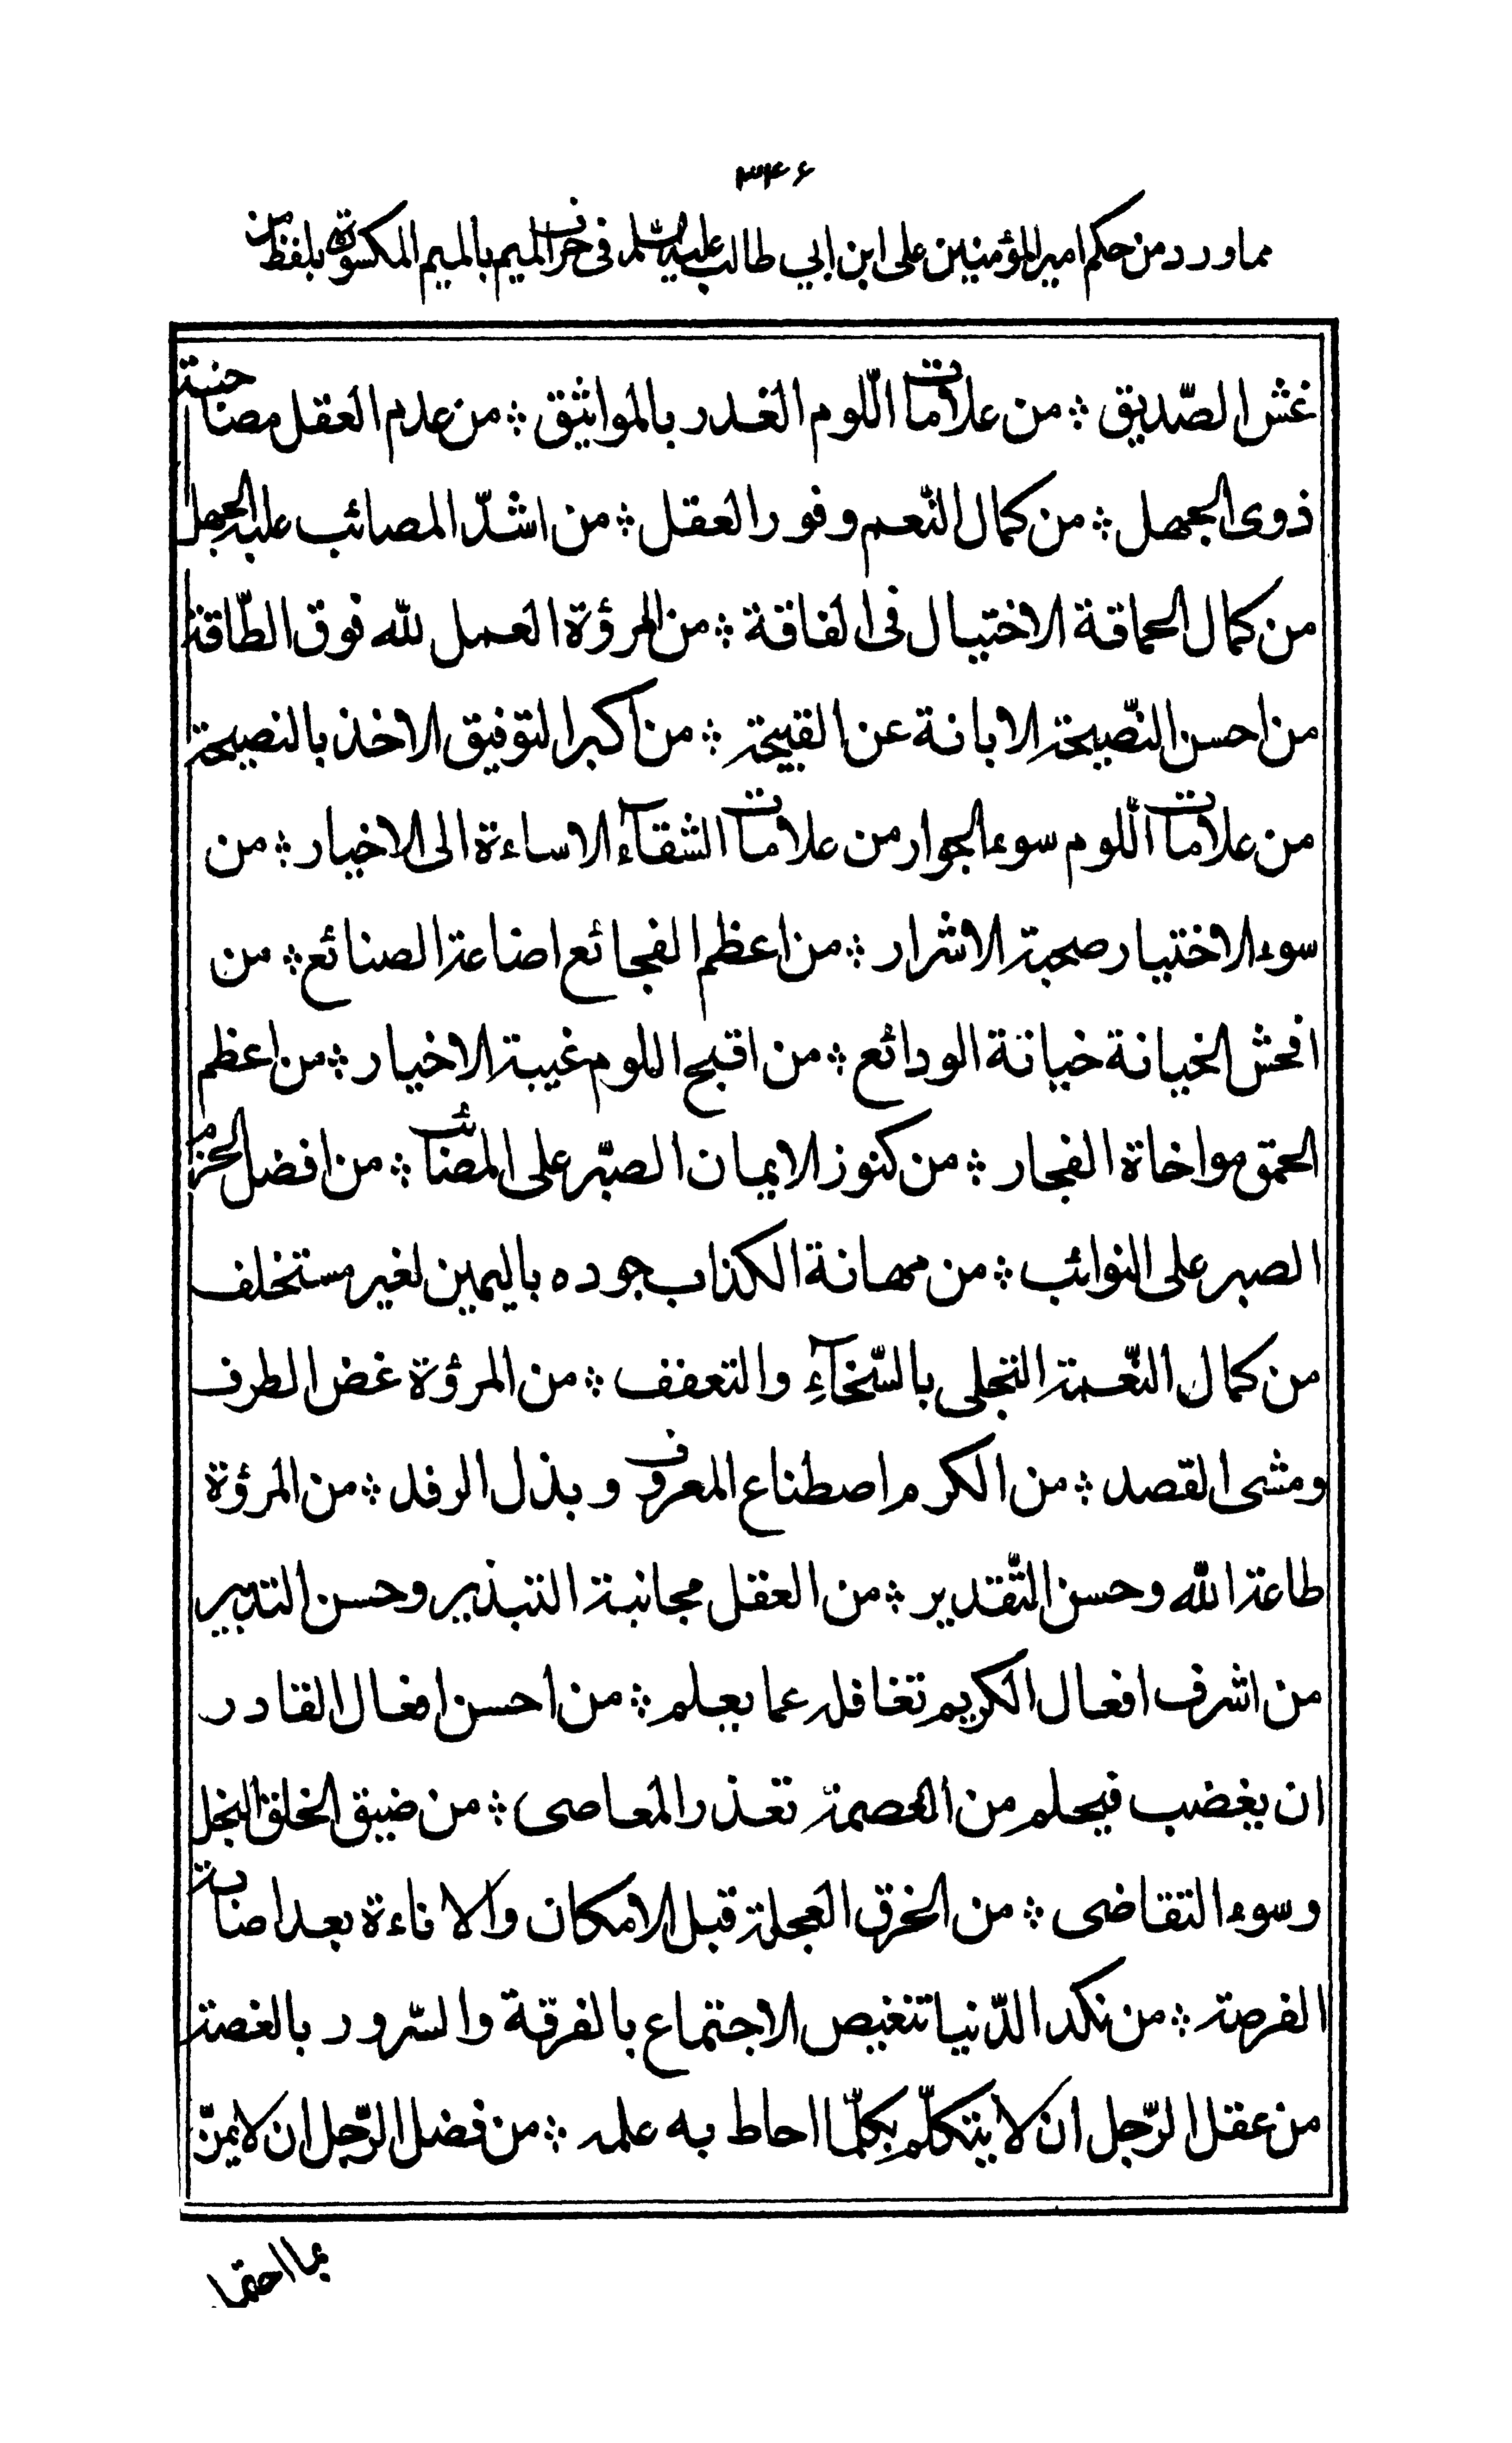 ۳۴۶
مما ورد من حكم امير المؤمنين على ابن ابي طالب عليه السلم فى حرف الميم بالميم المكسورة بلفظ من
غش الصّديق ❖ من علامات اللّوم الغدر بالمواثيق ❖ من عدم العقل مصاحبة
ذوى الجهل ❖ من كمال النّعم وفور العقل ❖ من اشدّ المصائب غلبة الجهل
من كمال الحماقة الاختيال فى الفاقة ❖ من المرؤة العمل لله فوق الطّاقة
من احسن النّصيحة الابانة عن القبيحة ❖ من اكبر التوفيق الاخذ بالنصيحة
من علامات اللّوم سوء الجوار من علامات الشقآء الاساءة الى الاخيار ❖ من
سوء الاختيار صحبة الاشرار ❖ من اعظم الفجائع اضاعة الصنائع ❖ من
افحش الخيانة خيانة الودائع ❖ من اقبح اللوم غيبة الاخيار ❖ من اعظم
الحمق مواخاة الفجار ❖ من كنوز الايمان الصبّر على المصائب ❖ من افضل الحزم
الصبر على النوائب ❖ من مهانة الكذاب جوده باليمين لغير مستخلف
من كمال النّعمة التجلى بالسّخآءِ والتعفف ❖ من المرؤة غض الطرف
ومشى القصد ❖ من الكرم اصطناع المعروف و بذل الرفد ❖ من المرؤة
طاعة الله وحسن التّقدير ❖ من العقل مجانبة التبذير وحسن التدبير
من اشرف افعال الكريم تغافله عما يعلم ❖ من احسن افعال القادر
ان يغضب فيحلم من العصمة تعذر المعاصى ❖ من ضيق الخلق البخل
وسوء التقاضى ❖ من الخرق العجلة قبل الامكان والاناءة بعد اصابة
الفرصة ❖ من نكد الدّنيا تنغيص الاجتماع بالفرقة والسّرور بالغصة
من عقل الرّجل ان لا يتكلّم بكلّما احاط به علمه ❖ من فضل الرّجل ان لا يمنّ
بما احتمله